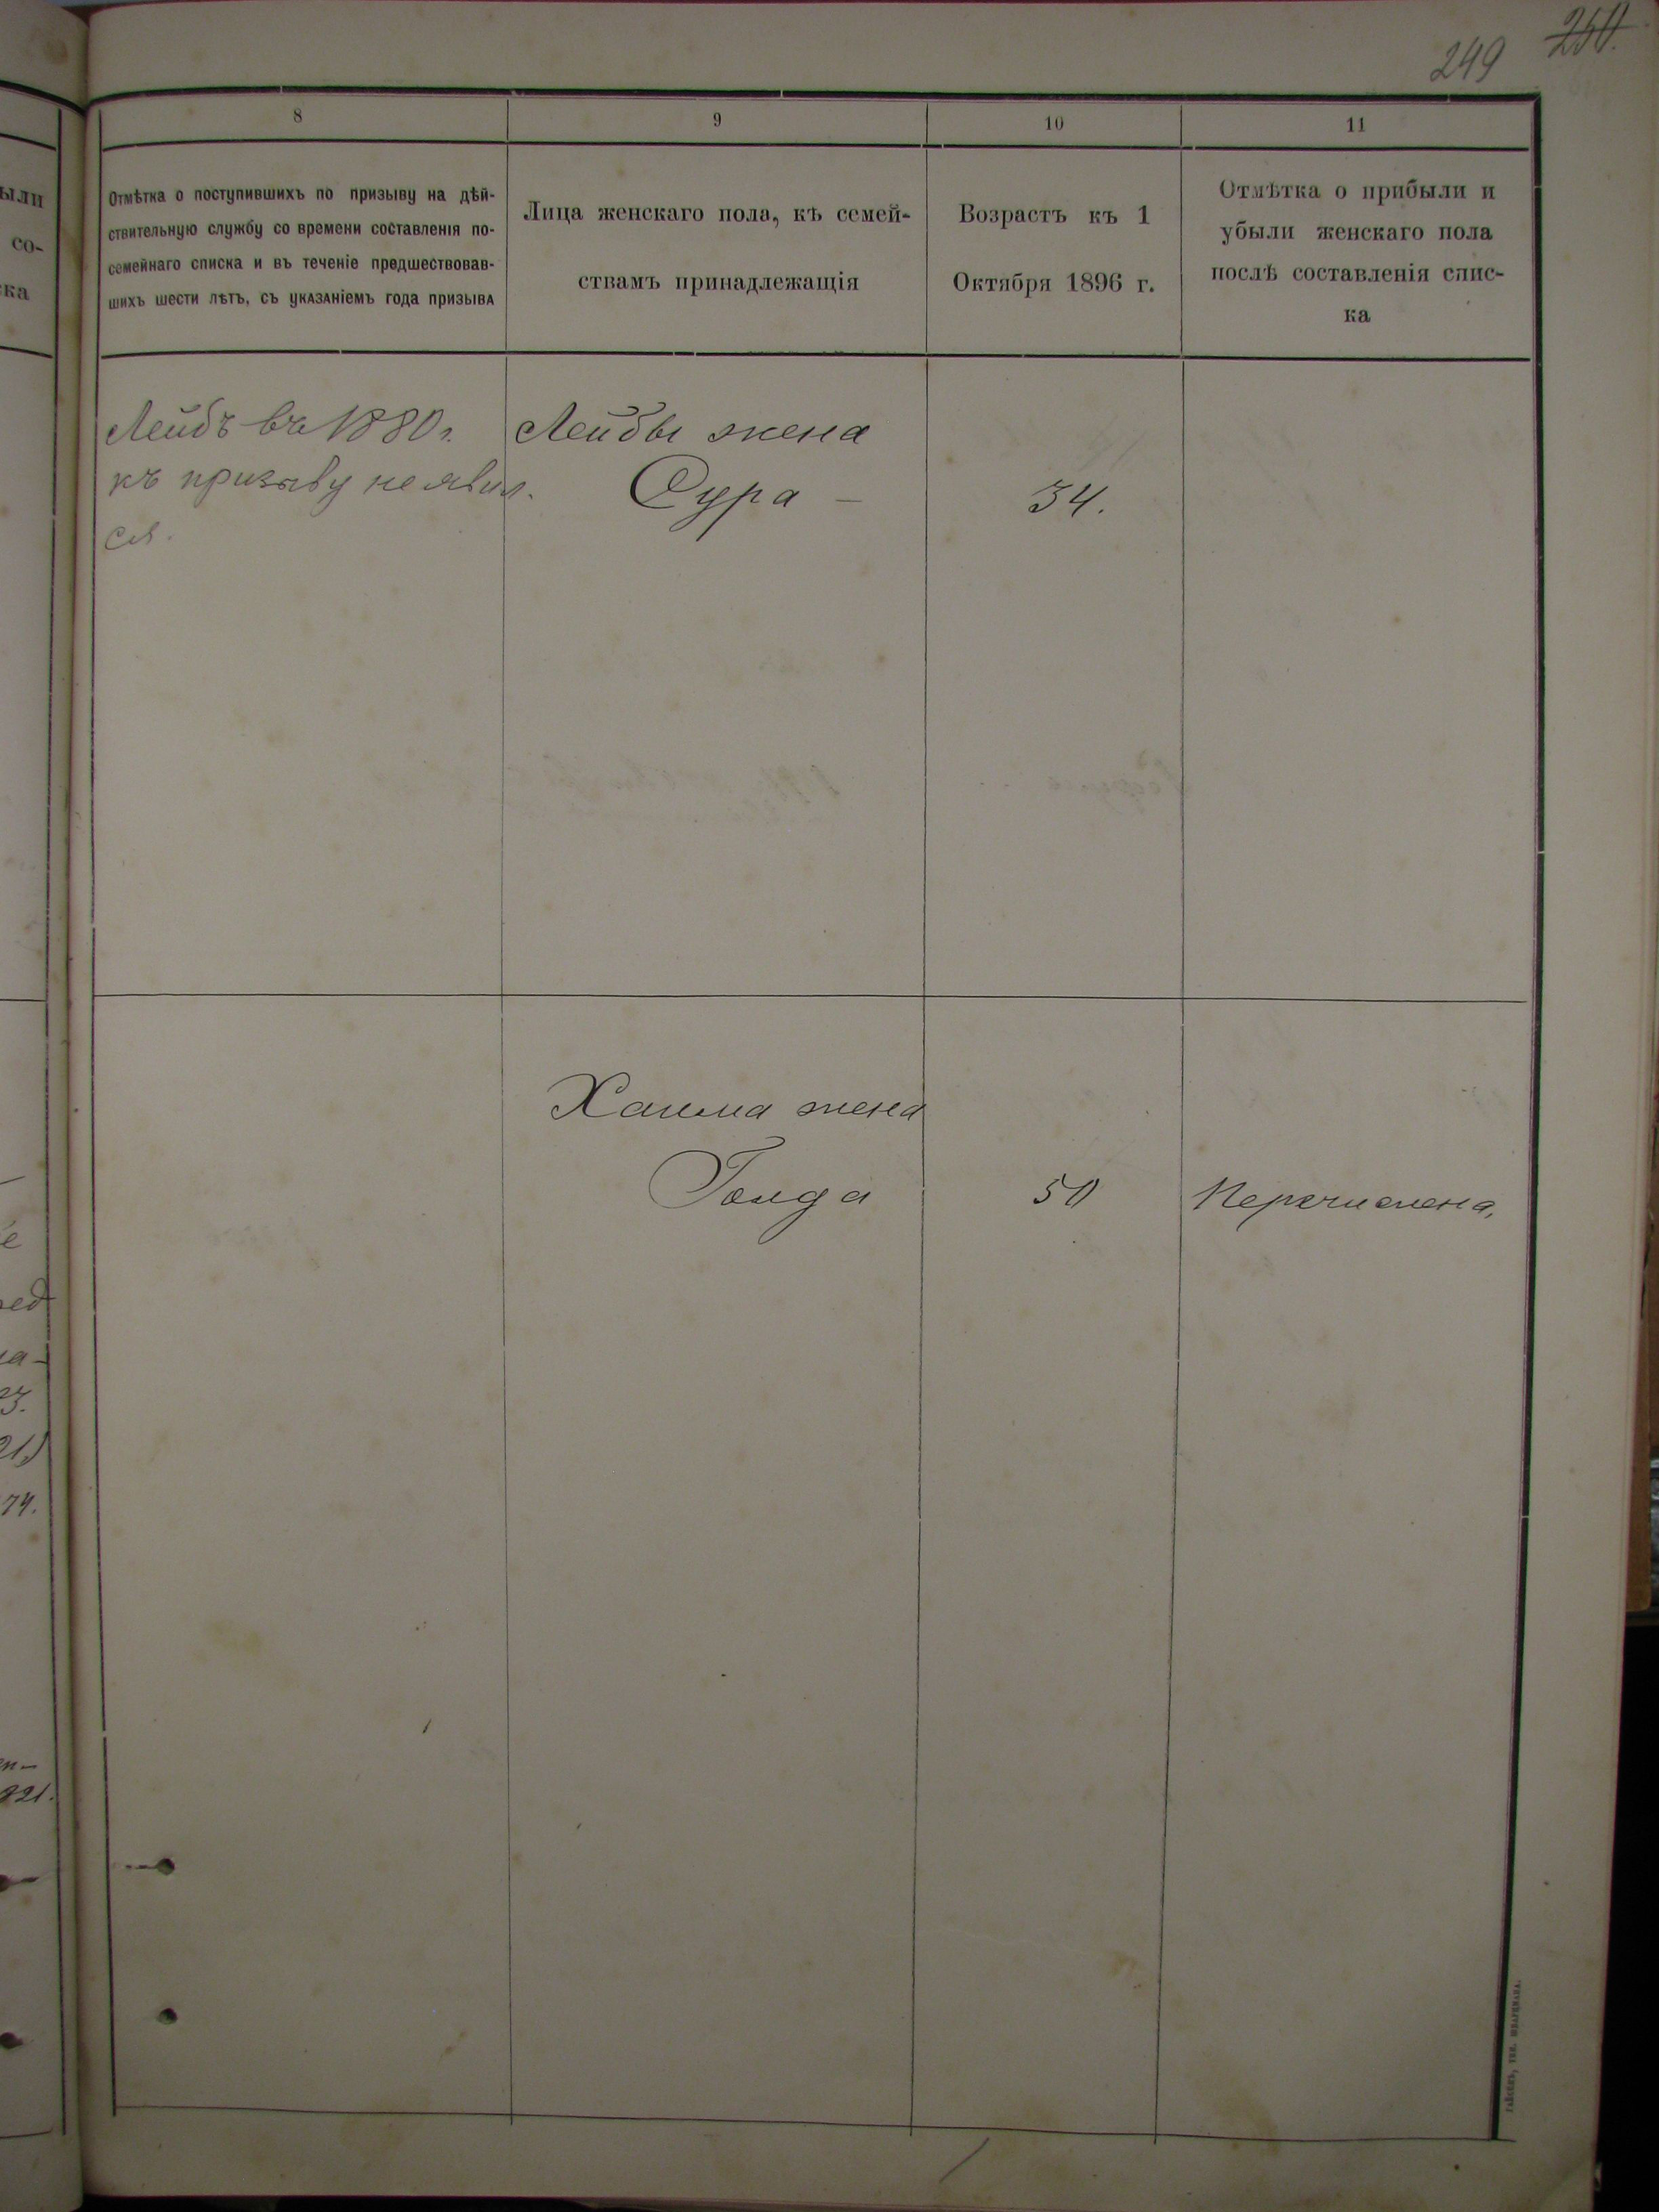 249 250.
8
9
10
11
Отмѣтка о поступившихъ по призыву на дѣй-
ствительную службу со времени составленія по-
семейнаго списка и въ теченіе предшествовав-
шихъ шести лѣтъ, съ указаніемъ года призыва
Лица женскаго пола, къ семей-
ствамъ принадлежащія
Возрастъ къ 1
Октября 1896 г.
Отмѣтка о прибыли и
убыли женскаго пола
послѣ составленія спис-
ка
ыли
со-
ка
Лейбъ въ 1880 г.
къ призыву не явил.
ся.
Лейбы жена
Сура –
34.
Хаима жена
Голда
50
Перечислена.
е
ед
а-
3.
21)
74.
821.
Гайсинъ, тип. Шварцмана.